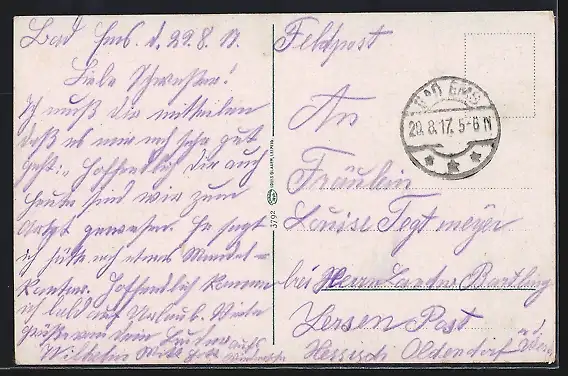 Bad Ems. d. 29.8.17.
Liebe Schwester!
Ich muß dir mitteilen
daß es mir noch sehr gut
geht. Hoffentlich dir auch
heute sind wir zum
Artzt gewesen. Er sagt
ich hätte noch etwas Mandel-
Hoffentlich komme
ich bald auf Urlaub. Viele
grüße von dein Bruder
Wilhelm
Feldpost
An
Fräulein
Louise Tegtmeyer
bei Herrn Bartling
Post
Hessisch Oldendorf
BAD EMS
29.8.17. 5-6 N
3792